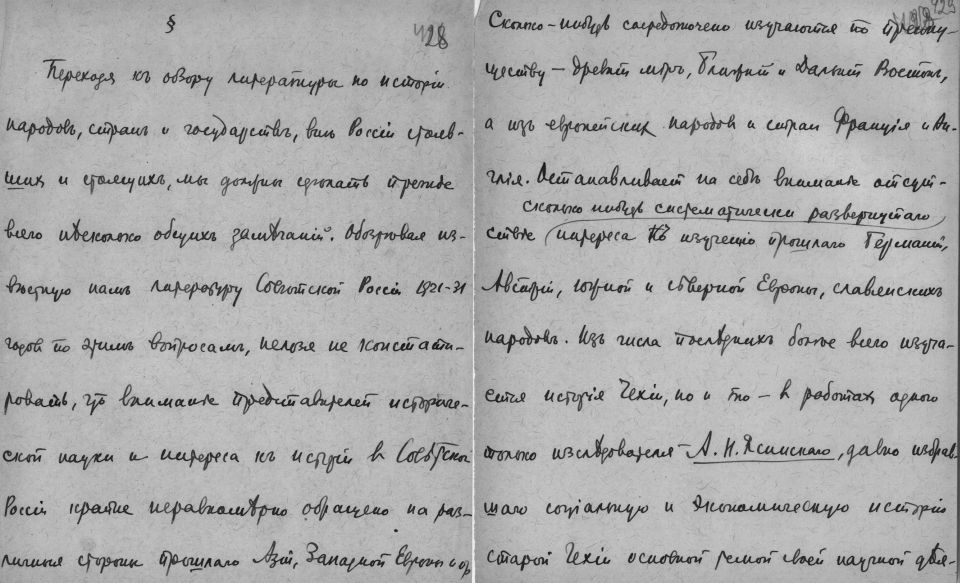 §
428
Переходя къ обзору литературы по исторіи
народовъ, странъ и государствъ, внѣ Россіи стояв-
шихъ и стоящихъ, мы должны сдѣлать прежде
всего нѣсколько общихъ замѣчаній. Обозрѣвая из-
вѣстную намъ литературу Совѣтской Россіи 1921-31
годов по этимъ вопросамъ, нельзя не констати-
ровать, что вниманіе представителей историче-
ской науки и интереса къ исторіи в Совѣтской
Россіи крайне неравномѣрно обращено на раз-
личныя стороны прошлаго Азіи, Западной Европы и др.
429
Сколько-нибудь сосредоточено изучаются по преиму-
ществу – древній міръ, Ближній и Дальній Востокъ,
а изъ европейскихъ народов и стран Франція и Ан-
глія. Останавливает на себѣ вниманіе отсут-
сколько нибудь систематически развернутаго
ствіе интереса къ изученію прошлаго Германіи,
Австріи, южной и сѣверной Европы, славянскихъ
народовъ. Изъ числа послѣднихъ болѣе всего изуча-
ется исторія Чехіи, но и то – в работах одного
только изслѣдователя – А. Н. Ясинскаго, давно избрав-
шаго соціальную и экономическую исторію
старой Чехіи основной темой своей научной дѣя-